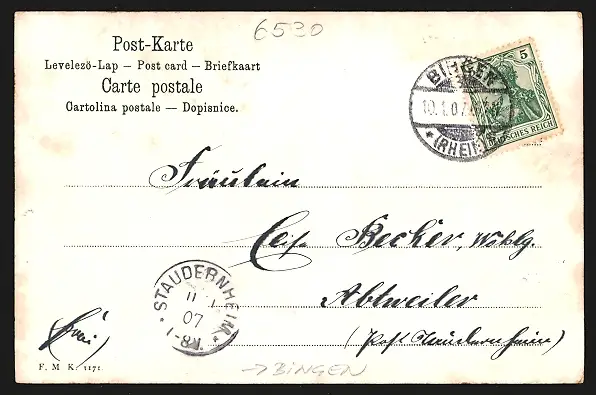 6530
Post-Karte
Levelezö-Lap – Post card – Briefkaart
Carte postale
Cartolina postale — Dopisnice.
5
DEUTSCHES REICH
BINGEN
10.1.07
* (RHEIN)
Fräulein
Becker, Wohlg.
Abtweiler
(Post Staudernheim)
STAUDERNHEIM
11
1
07
* K8-1 *
frei
F. M. K. 1171
→ BINGEN